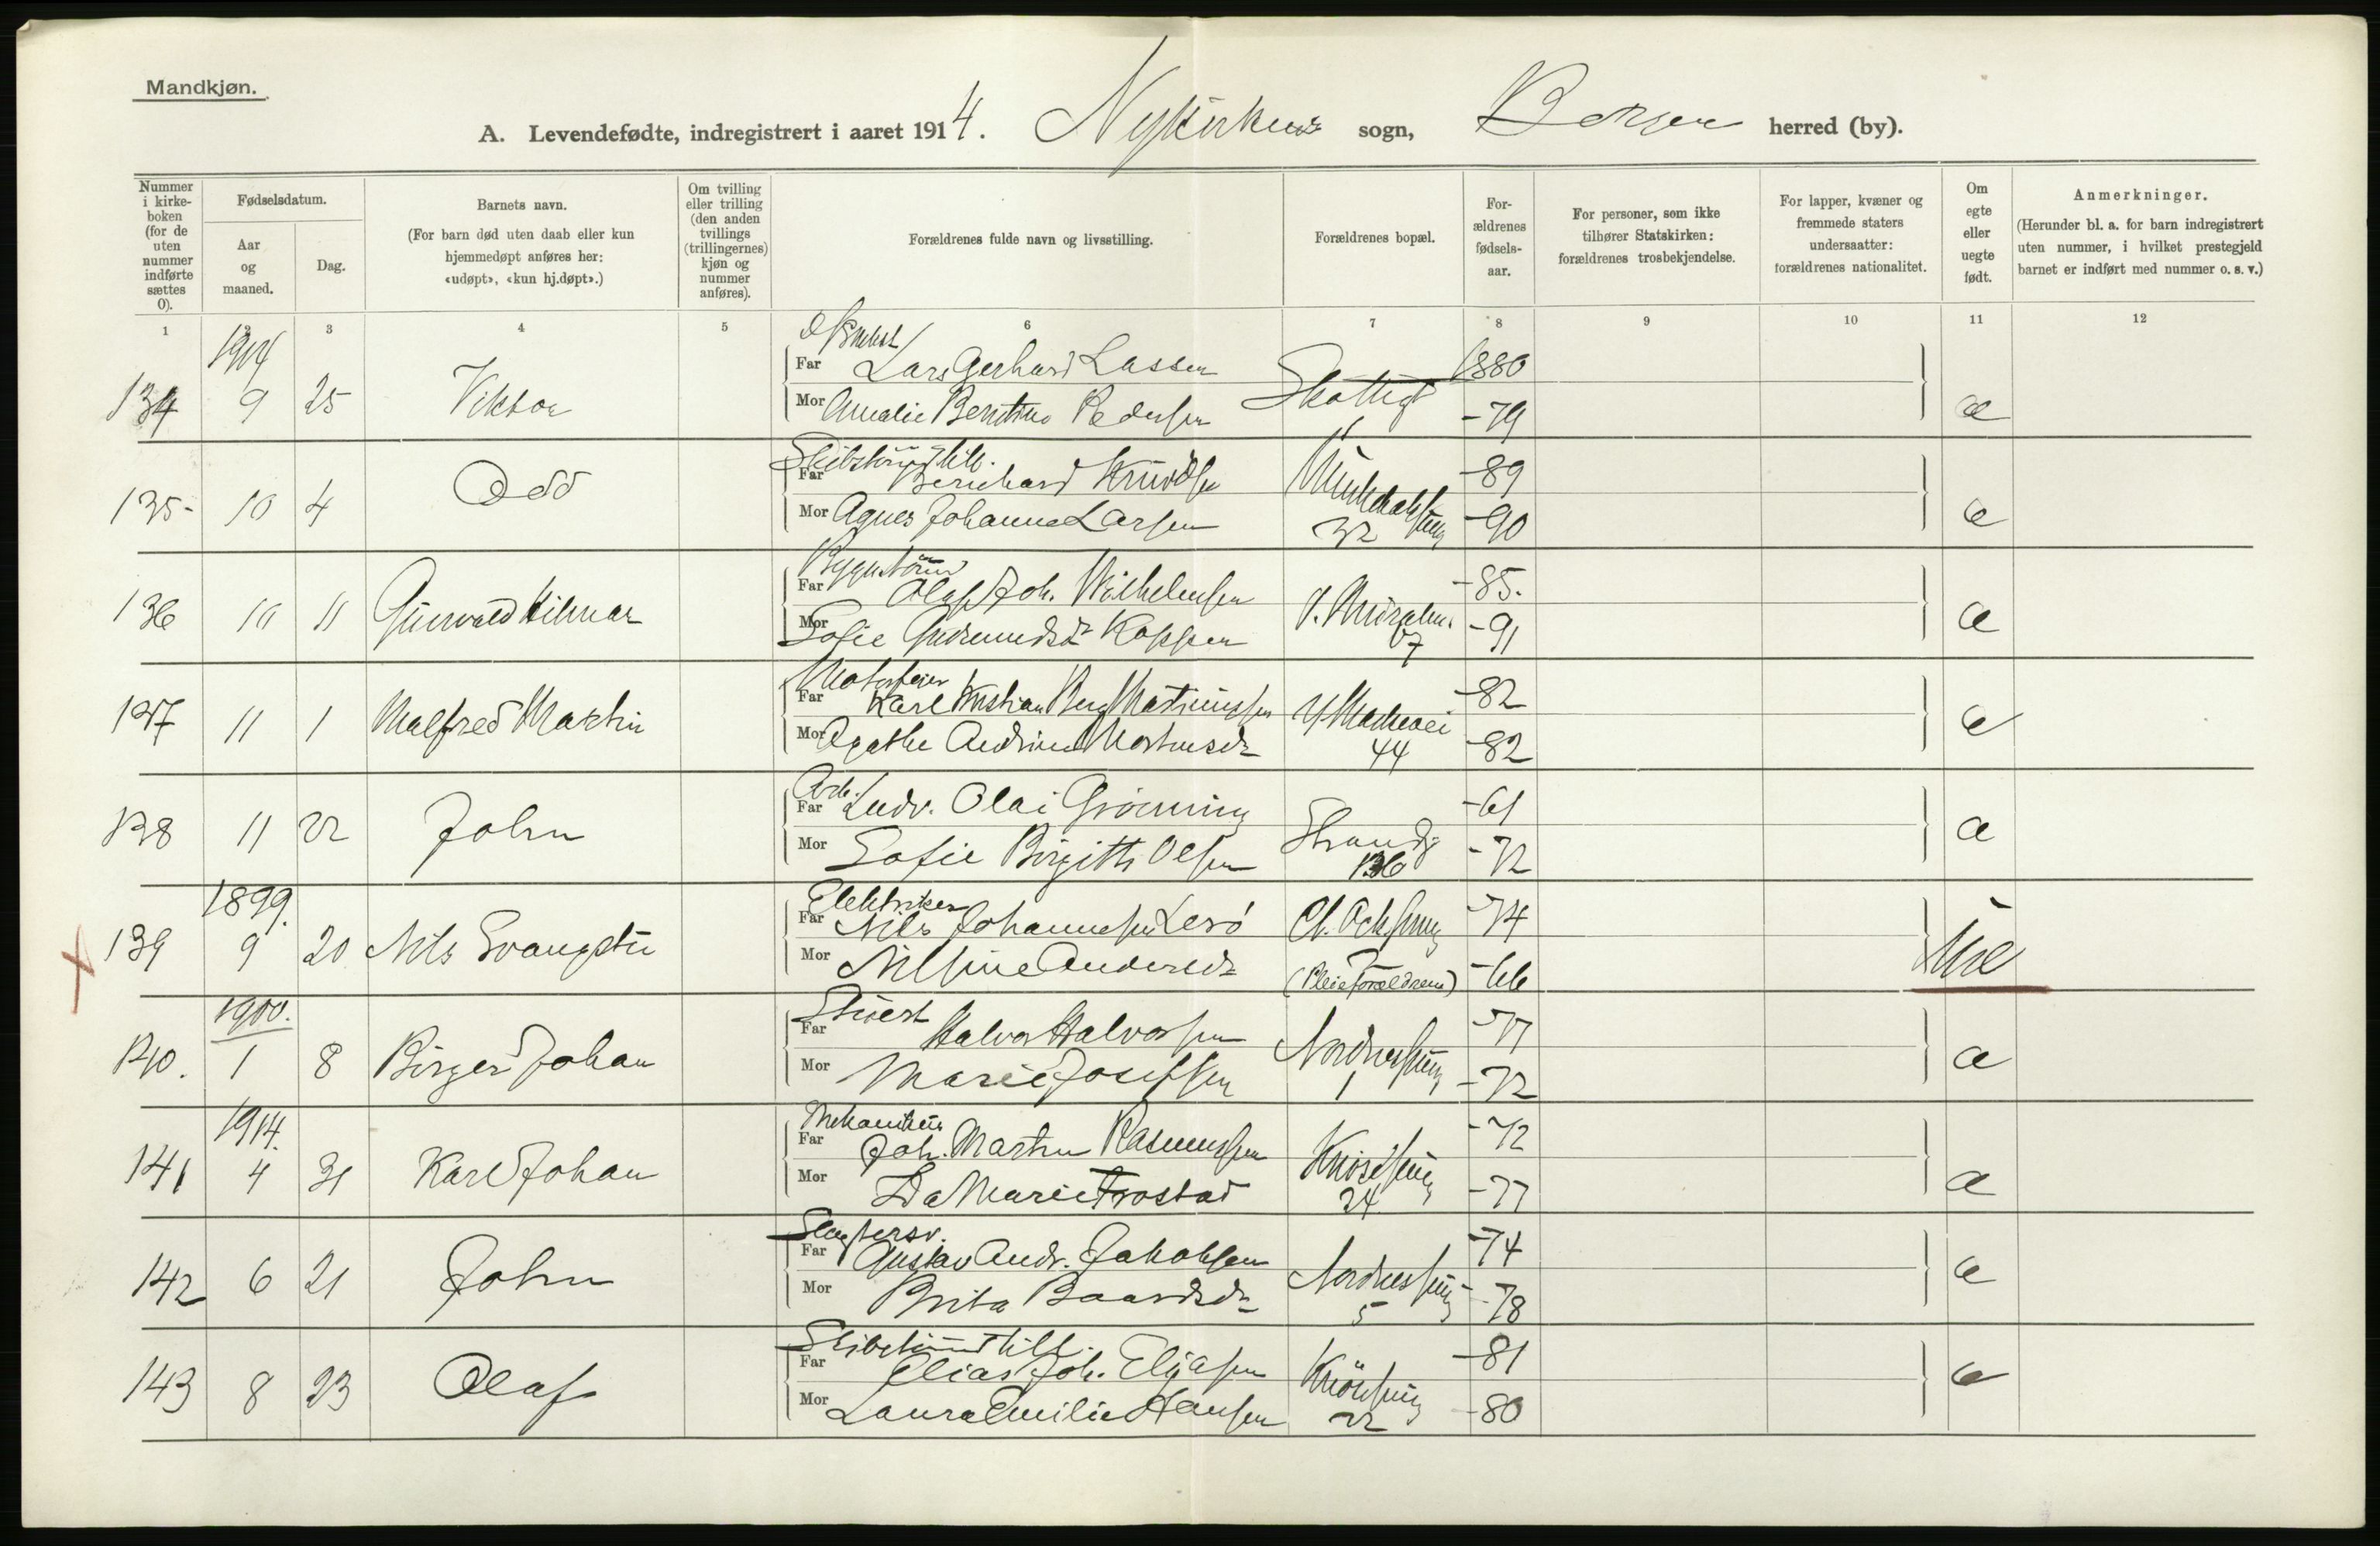 Mandkjøn.
A. Levendefødte, indregistrert i aaret 1914. Nykirkens sogn, Bergen herred (by).
Nummer i kirke-boken (for de uten nummer indførte sættes 0).
Fødselsdatum.
Aar og maaned.
Dag.
Barnets navn.
(For barn død uten daab eller kun hjemmedøpt anføres her: «udøpt», «kun hj.døpt».)
Om tvilling eller trilling (den anden tvillings (trillingernes) kjøn og nummer anføres).
Forældrenes fulde navn og livsstilling.
Forældrenes bopæl.
For-ældrenes fødsels-aar.
For personer, som ikke tilhører Statskirken: forældrenes trosbekjendelse.
For lapper, kvæner og fremmede staters undersaatter: forældrenes nationalitet.
Om egte eller uegte født.
Anmerkninger.
(Herunder bl. a. for barn indregistrert uten nummer, i hvilket prestegjeld barnet er indført med nummer o. s. v.)
1 2 3 4 5 6 7 8 9 10 11 12
1914
Far Lars Gerhard Lassen 1880
134 9 25 Viktor Mor Amalie Bentine Pedersen -79 æ
Far Bernhard Knudsen -89
135- 10 4 Odd Mor Agnes Johanne Larsen 32 -90 æ
Far Olaf Joh. Wilhelmsen -85.
136 10 11 Hilmar Mor Sofie Kopper -91 æ
Far Karl Kristian Berg -82
137 11 1 Malfred Martin Mor Agathe 44 -82 æ
Arb.
Far Ludv. Olai Grønning -61
138 11 22 John Mor Sofie Birgitte Olsen Strandg 136 -72 æ
1899.
Elektriker
Far Nils Johannesen Lerø -74
139 9 20 Nils Mor Nilsine Andersdr (Pleieforældrene) -66
1900.
Far Halvor Halvorsen -77
140. 1 8 Birger Johan Mor Marie Josefsen Nordnessmug 1 -72 æ
1914.
Mekaniker
Far Joh. Martin Rasmussen -72
141 4 31 Karl Johan Mor Ida Marie Frostad 24 -77 æ
Slagtersv.
Far Gustav Andr. Jakobsen -74
142 6 21 John Mor Brita Baardsdr Nordnessmug 5 -78 æ
Far Elias Joh. Eliasen -81
143 8 23 Olaf Mor Laura Emilie Hansen 22 -80 æ